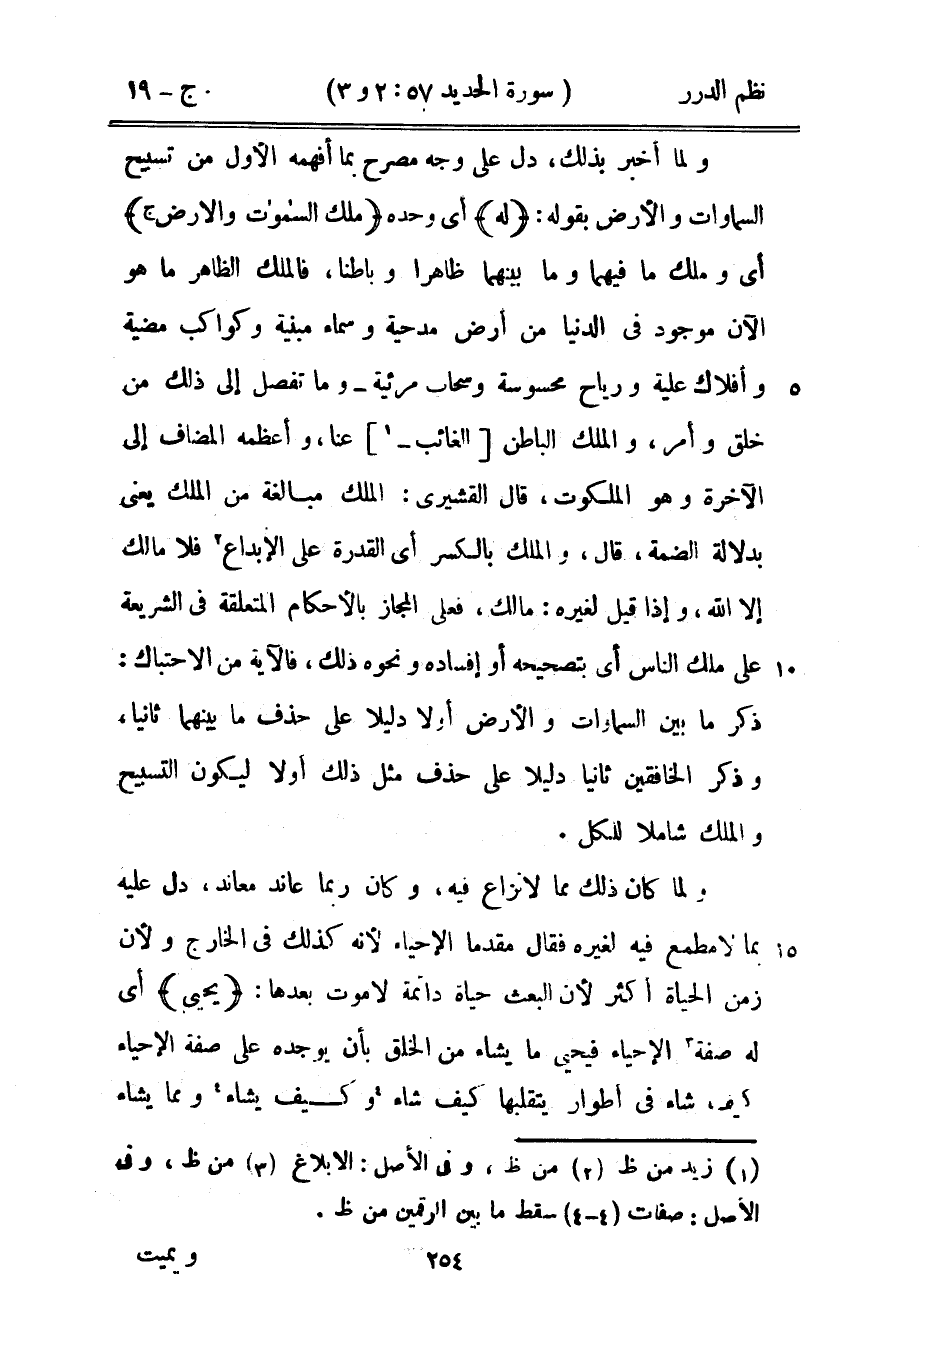 نظم الدرر ( سورة الحديد ٥٧ : ٢ و ٣ ) ج – ١٩
و لما أخبر بذلك، دل على وجه مصرح بما أفهمه الأول من تسبيح
السماوات و الأرض بقوله : ﴿ له ﴾ أى وحده ﴿ ملك السمٰوٰت والارض ج ﴾
أى و ملك ما فيهما و ما بينهما ظاهرا و باطنا، فالملك الظاهر ما هو
الآن موجود فى الدنيا من أرض مدحية و سماء مبنية و كواكب مضية
٥ و أفلاك علية و رياح محسوسة وسحاب مرئية – و ما تفصل إلى ذلك من
خلق و أمر ، و الملك الباطن [ الغائب – ١ ] عنا، و أعظمه المضاف إلى
الآخرة و هو الملكوت ، قال القشيرى : الملك مبالغة من الملك يعنى
بدلالة الضمة ، قال ، و الملك بالكسر أى القدرة على الإبداع٢ فلا مالك
إلا الله ، و إذا قيل لغيره : مالك ، فعلى المجاز بالأحكام المتعلقة فى الشريعة
١٠ على ملك الناس أى بتصحيحه أو إفساده و نحوه ذلك ، فالآية من الاحتباك :
ذكر ما بين السماوات و الأرض أولا دليلا على حذف ما بينهما ثانيا ،
و ذكر الخافقين ثانيا دليلا على حذف مثل ذلك أولا ليكون التسبيح
و الملك شاملا للكل .
و لما كان ذلك مما لانزاع فيه ، و كان ربما عاند معاند ، دل عليه
١٥ بما لامطمع فيه لغيره فقال مقدما الإحياء لأنه كذلك فى الخارج و لأن
زمن الحياة أكثر لأن البعث حياة دائمة لاموت بعدها : ﴿ يحيى ﴾ أى
له صفة٣ الإحياء فيحيى ما يشاء من الخلق بأن يوجده على صفة الإحياء
كيف شاء فى أطوار يتقلبها كيف شاء ٤و كيف يشاء٤ و مما يشاء
(١) زيد من ظ (٢) من ظ ، و فى الأصل : الابلاغ (٣) من ظ ، و فى
الأصل : صفات (٤–٤) سقط ما بين الرقمين من ظ .
٢٥٤ و يميت